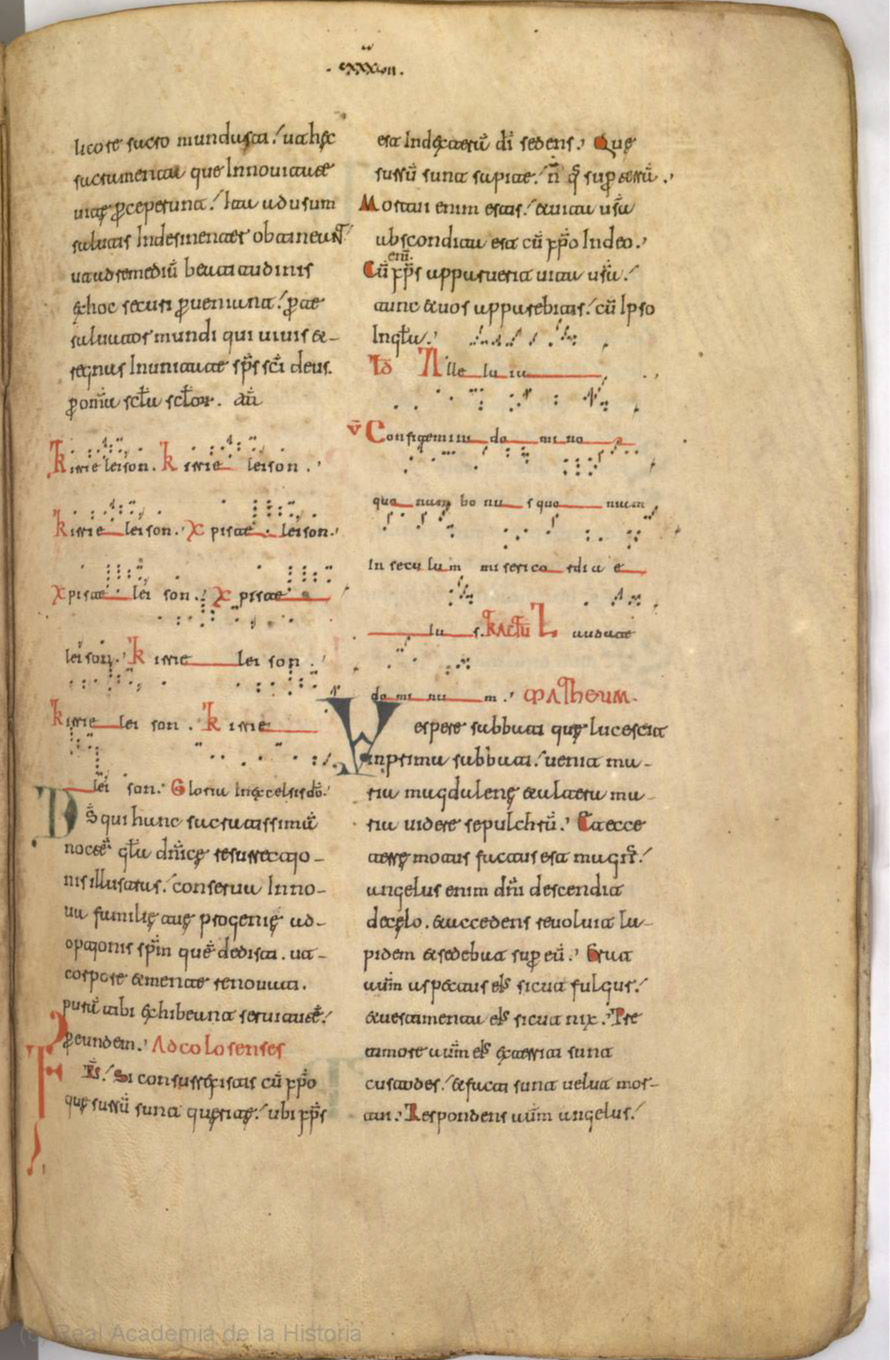 licore sacro mundasti. ut hęc
sacramenta que Innouitate
uitę ꝑceperunt. Ita ad usum
salutis Indesinenter obtineant
ut ad remediū beatitudinis
ęx hoc securi ꝓueniant. ꝑ te
saluator mundi qui uiuis &
regnas In unitate sp̄s sc̄i deus.
ꝑ om̄ia sc̄la sc̄lor. am̄
Kirrie leison. Kirrie leison.
Kirrie leison. Xpiste leison.
Xpiste lei son. Xpiste
leison. Kirrie lei son.
Kirrie lei son. Kirrie
lei son. Gloria Inęxcelsis dō.
Ds̄ qui hanc sacratissimā
noctē gl̄a dn̄icę resurrectio
nis illustras. conserua Inno
ua familię tuę progenię ad
optionis sp̄m quē dedisti. ut
corpore & mente renouati.
purā tibi ęxhibeant seruitutē.
ꝑ eundem. Ad colosenses
FR̄s. Si consurrexistis cū xp̄o
quę sursū sunt quęrite. ubi xp̄s
est Indęxterā dī sedens. Quę
sursū sunt sapite. n̄ q̄ suꝑ terrā.
Mortui enim estis. & uita ur̄a
abscondita est cū xp̄o Indeo.
Cū enī xp̄s apparuerit uita ur̄a.
tunc & uos apparebitis. cū Ipso
Ingl̄a.
Alle lu ia
V̄ Confitemini do mi no
quo niam bo nu s quo niam
In secu lum miserico rdia e
iu s. Tractū Laudate
do mi nu m. MATHEUM.
Vespere sabbati quę lucescit
Inprima sabbati. uenit ma
ria magdalenę & altera ma
ria uidere sepulchrū. Et ecce
terrę motus factus est magn̄.
angelus enim dn̄i descendit
decęlo. & accedens reuoluit la
pidem & sedebat suꝑ eū. Erat
autm̄ aspectus eīs sicut fulgur.
& uestimenta eīs sicut nix. Pre
timore autm̄ eīs ęxterriti sunt
custodes. & facti sunt uelut mor
tui. Respondens autm̄ angelus.
(c) Real Academia de la Historia